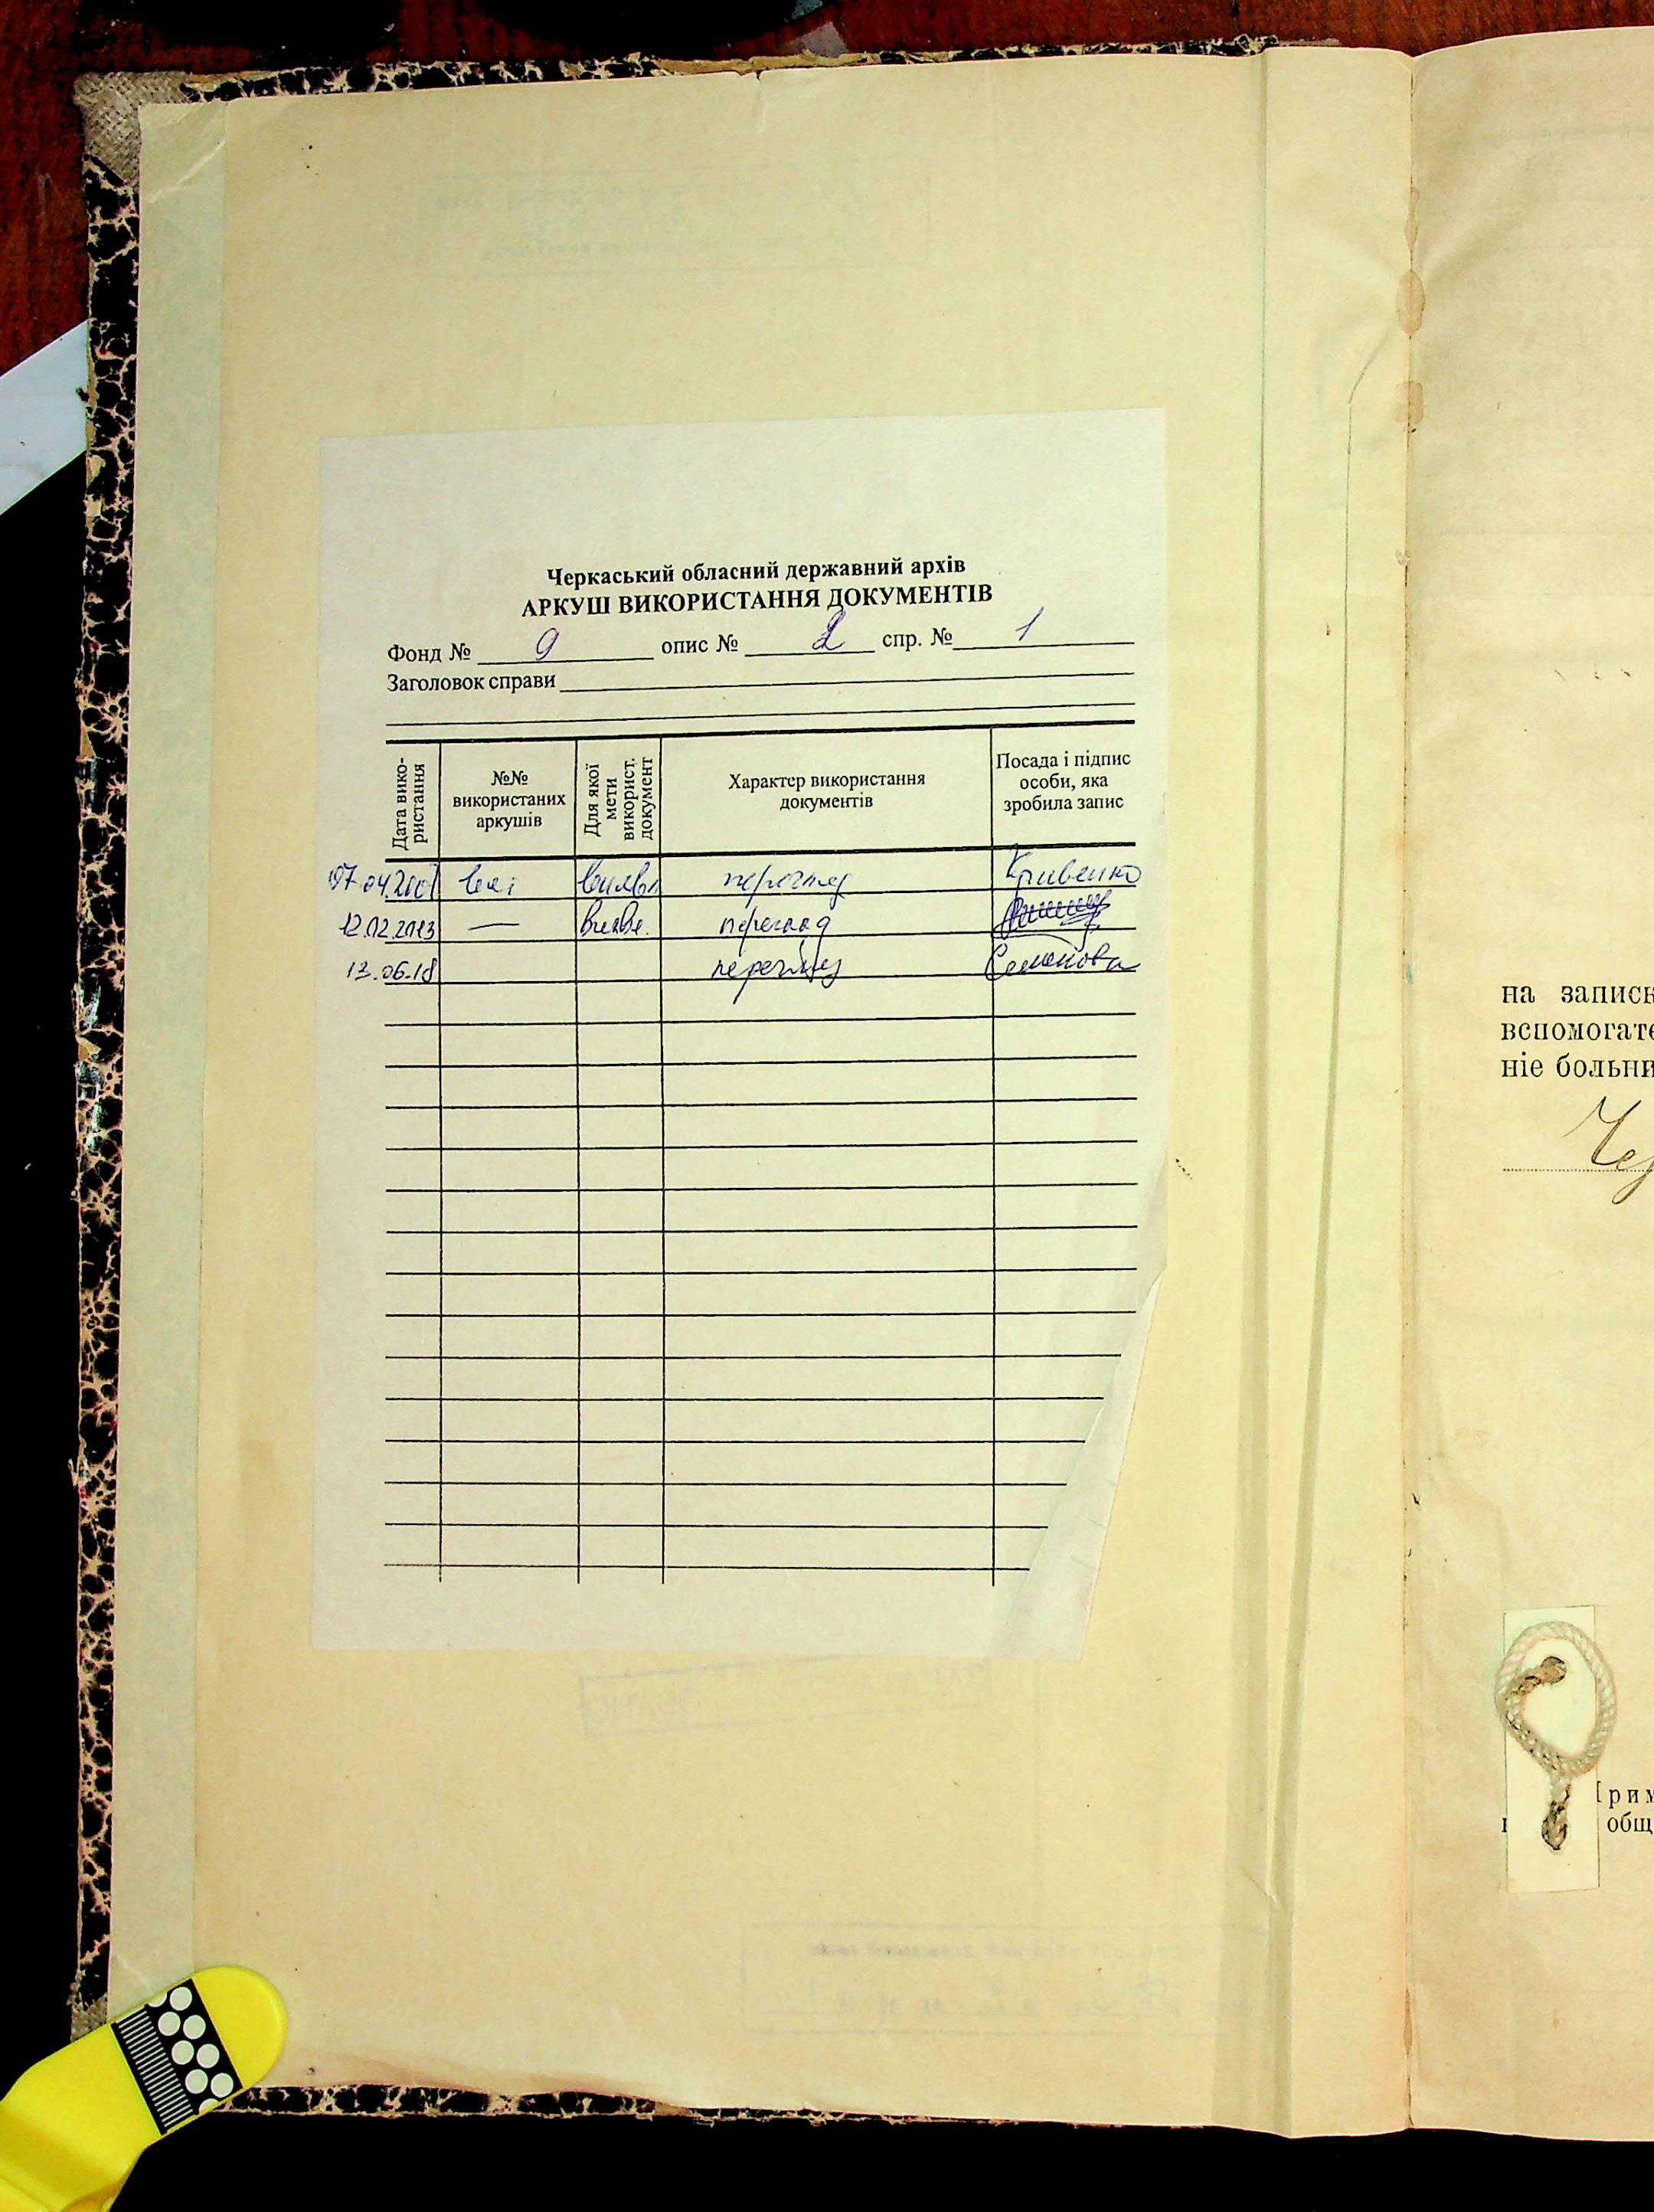 Черкаський обласний державний архів
АРКУШ ВИКОРИСТАННЯ ДОКУМЕНТІВ
Фонд № 9 опис № 2 спр. № 1
Заголовок справи
Дата вико-
ристання
№№
використаних
аркушів
Для якої
мети
використ.
документ
Характер використання
документів
Посада і підпис
особи, яка
зробила запис
07.04.2001 всі перегляд Кривенко
12.02.2013 — перегляд
13.06.18 перегляд Семенова
на записк
вспомогате
ніе больни
Чер
Прим
общ